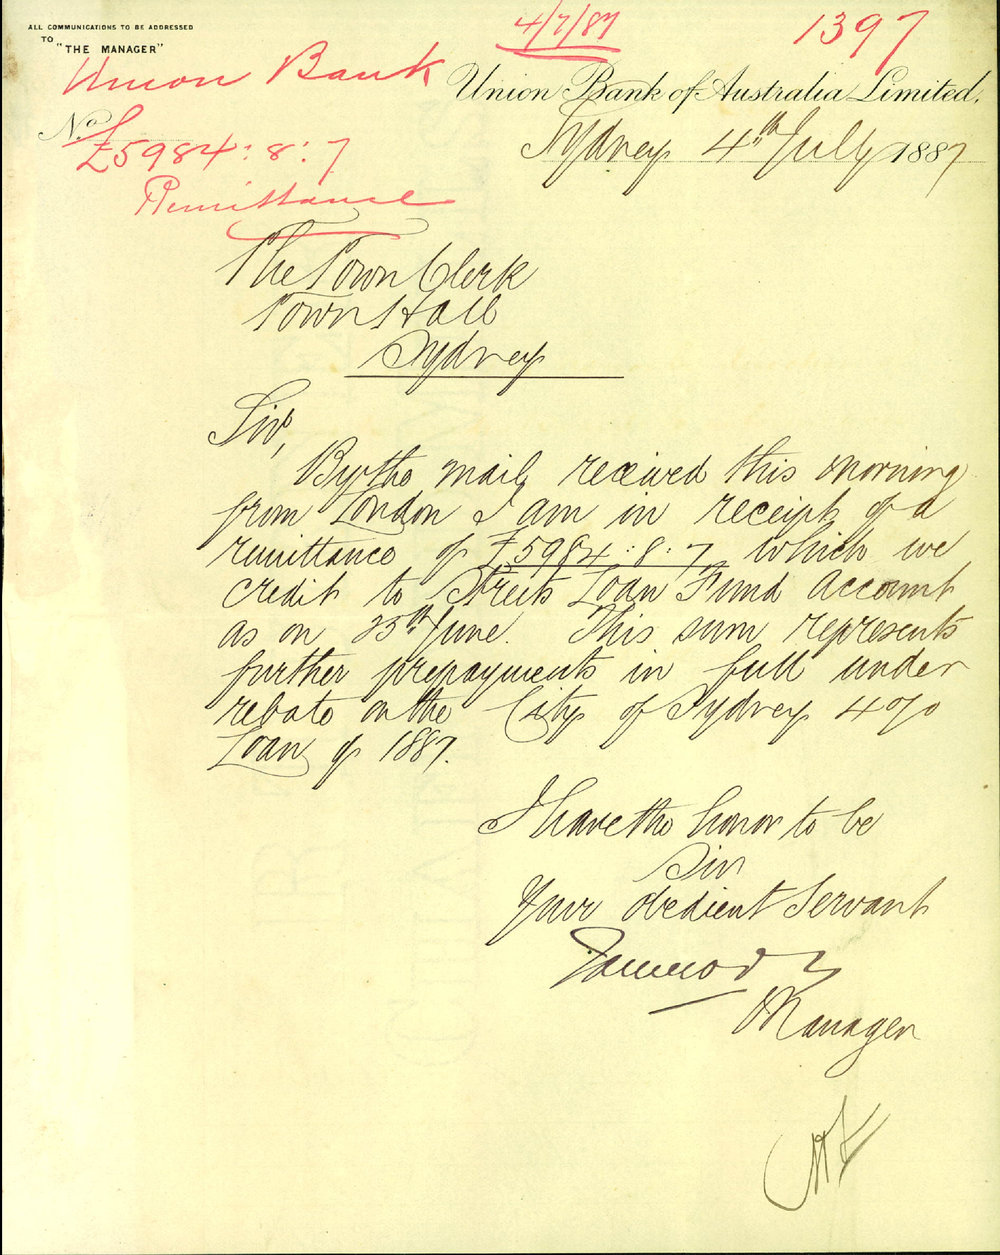 ALL COMMUNICATIONS TO BE ADDRESSED
TO "THE MANAGER"
4/7/87
1397
Union Bank
£5984:8:7
Remittance
Union Bank of Australia Limited.
No.
Sydney 4th July 1887
The Town Clerk
Town Hall
Sydney
Sir,
By the mail received this morning
from London I am in receipt of a
remittance of £5984:8:7 which we
credit to Streets Loan Fund Account
as on 25th June. This sum represents
further prepayments in full under
rebate on the City of Sydney 4%
Loan of 1887.
I have the honor to be
Sir
Your obedient Servant
Manager